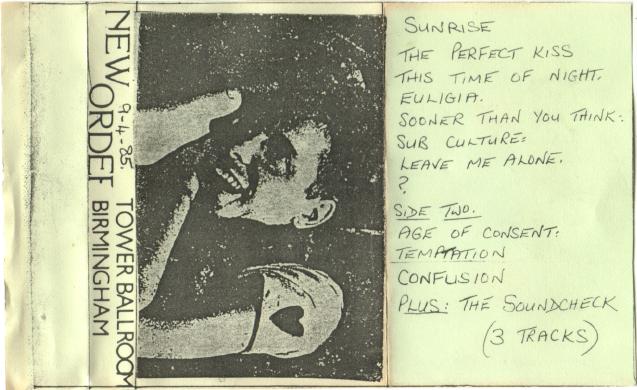 NEW ORDER
9-4-85.
TOWER BALLROOM
BIRMINGHAM
SUNRISE
THE PERFECT KISS
THIS TIME OF NIGHT.
EULIGIA.
SOONER THAN YOU THINK:
SUB CULTURE:
LEAVE ME ALONE.
?
SIDE TWO.
AGE OF CONSENT:
TEMPTATION
CONFUSION
PLUS: THE SOUNDCHECK
(3 TRACKS)